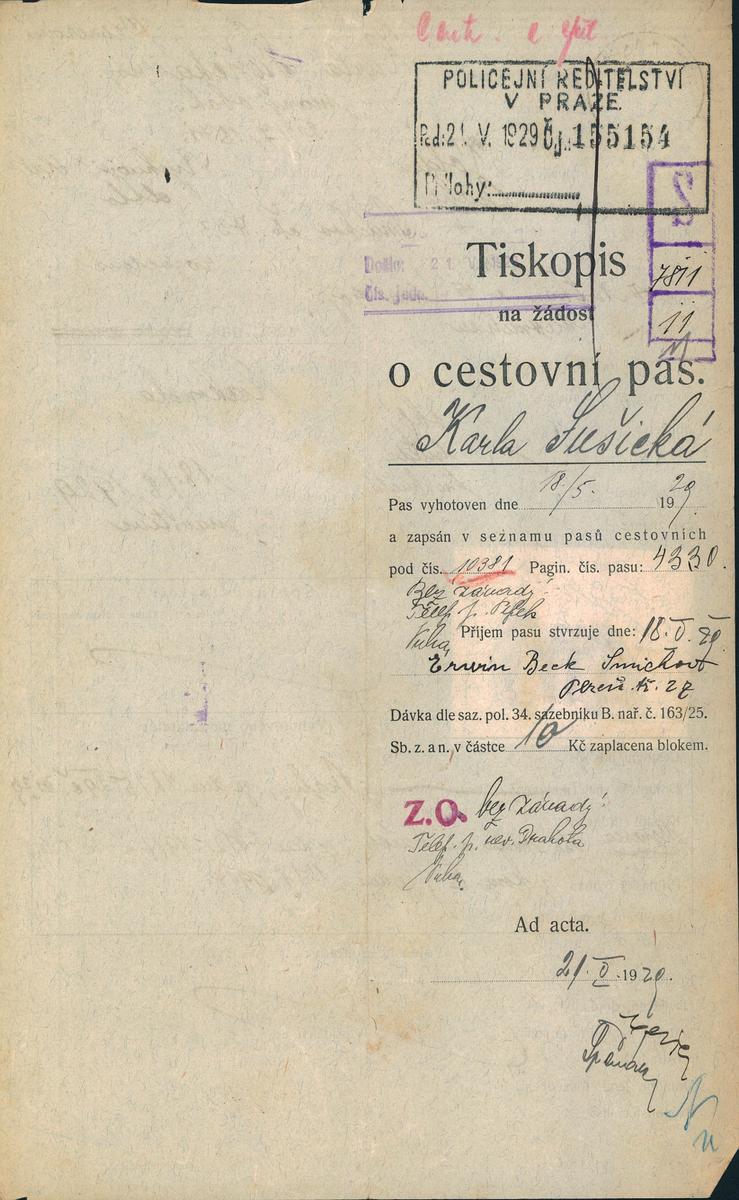 POLICEJNÍ ŘEDITELSTVÍ
V PRAZE.
P.d.: 21. V. 1929 Čj. 155154
Přílohy:
Došlo: 21 V.
Čís. jedn.
7811
11
Tiskopis
na žádost
o cestovní pas.
Karla Sušická
Pas vyhotoven dne 18/5. 1929.
a zapsán v seznamu pasů cestovních
pod čís. 10381 Pagin. čís. pasu: 4330.
Bez závady!
Telef. p.
Příjem pasu stvrzuje dne: 18. V. 29
Erwin Beck Smíchov
27
Dávka dle saz. pol. 34. sazebníku B. nař. č. 163/25.
Sb. z. a n. v částce 10 Kč zaplacena blokem.
Z.O. bez závady!
Telef. p. rev. Drahota
Ad acta.
21. V. 1929.